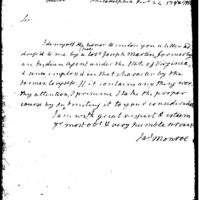 Philadelphia
Sir
I do myself the honor to inclose you a letter ad
dress'd to me by a Col. Joseph Martin formerly
an Indian agent under the State of Virginia,
& since employed in that character by the
former Congress. If it contains any thing wor
thy attention, I presume I take the proper
course by submitting it to your consideration
I am with great respect & esteem
yr. most obt. & very humble servant
Jas. Monroe